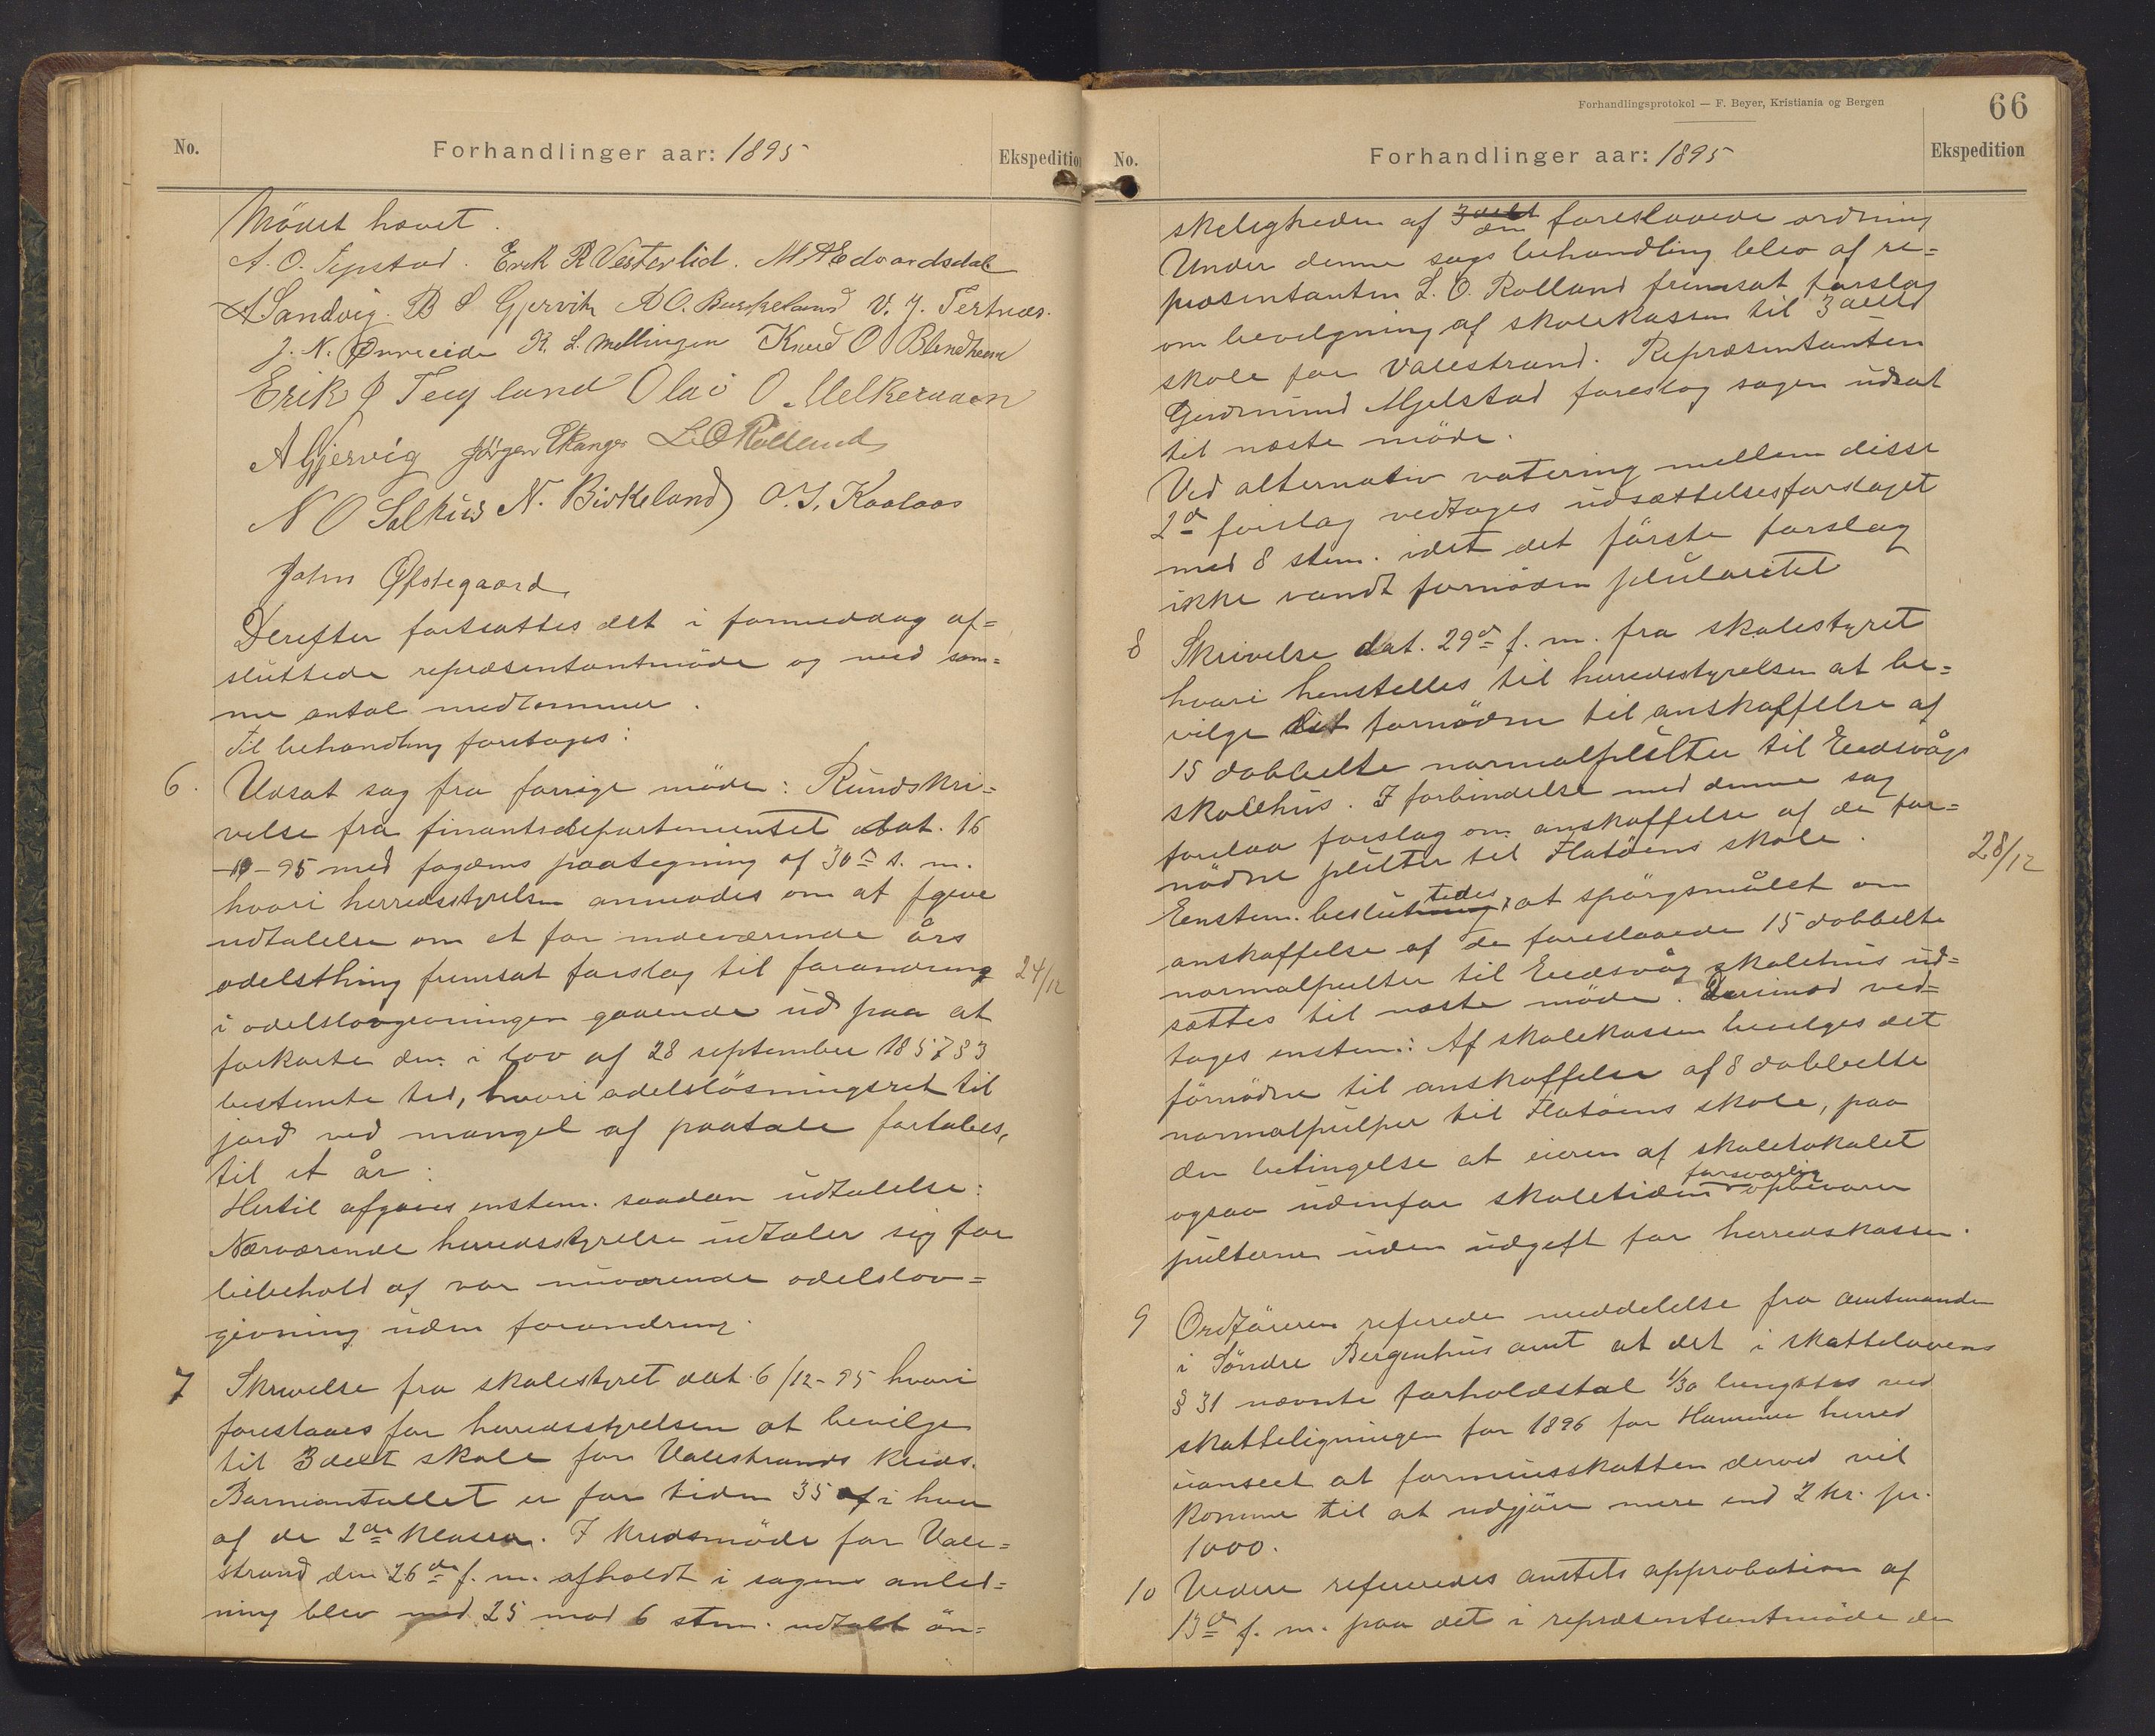 No. Forhandlinger aar: 1895 Ekspedition
Mödet hævet.
A. O. Tepstad. Erik R Vesterlid. M A Edvardsdal
A Sandvig. B S Gjervik A O. Burkeland V. J. Tertnæs.
J. N. Ønreeide K. L. Mellingen Knud O Blindheim
Erik J Teigland Olai O. Melkeraaen
A Gjervig Jörgen Stange L. O Rolland
N O Salhus N. Birkeland O. I. Kaalaas
John Øfstegaard
Derefter fortsattes det i formiddag af=
sluttede repræsentantmöde og med sam=
me antal medlemmer.
Til behandling foretoges:
6. Udsat sag fra forrige möde: Rundskri=
velse fra finantsdepartementet dat. 16
-10-95 med fogdens paategning af 30d s. m.
hvori herredsstyrelsen anmodes om at fgive
udtalelse om et for indeværende års
odelsthing fremsat forslag til forandring
i odelslovgivningen gaaende ud paa at 24/12
forkorte den i lov af 28 september 1857 § 3
bestemte tid, hvori odelslösningsret til
jord ved mangel af paatale fortabes,
til et år:
Hertil afgaves enstem. saadan udtalelse:
Nærværende herredsstyrelse udtaler sig for
bibehold af vor nuværende odelslov=
givning uden forandring.
7 Skrivelse fra skolestyret dat. 6/12-95 hvori
foreslaaes for herredsstyrelsen at bevilge
til 3delt skole for Valestrands kreds.
Barneantallet er for tiden 35 af i hver
af de 2de klasser. I kredsmöde for Vale=
strand den 26de f. m. afholdt i sagens anled=
ning blev med 25 mod 6 stem. udtalt ön=
Forhandlingsprotokol — F. Beyer, Kristiania og Bergen 66
No. Forhandlinger aar: 1895 Ekspedition
skeligheden af 3delt den foreslaaede ordning
Under denne sags behandling blev af re=
præsentanten L. O. Rolland fremsat forslag
om bevilgning af skolekassen til 3delt
skole for Valestrand. Repræsentanten
Gudmund Mjelstad foreslog sagen udsat
til næste möde.
Ved alternativ votering mellem disse
2de forslag vedtoges udsættelsesforslaget
med 8 stem. idet det förste forslag
ikke vandt fornöden pluluritet
8 Skrivelse dat. 29de f. m. fra skolestyret
hvori henstelles til herredsstyrelsen at be=
vilge det fornödne til anskaffelse af
15 dobbelte normalpulter til Eidsvåg
skolehus. I forbindelse med denne sag
forelaa forslag om anskaffelse af de for=
nödne pulter til Flatöens skole. 28/12
Eenstem. beslutning tedes at spörgsmålet om
anskaffelse af de foreslaaede 15 dobbelte
normalpulter til Eidsvåg skolehus ud=
sættes til næste möde. Derimod ved=
toges enstem: Af skolekassen bevilges det
förnödne til anskaffelse af 8 dobbelte
normalpulper til Flatöens skole, paa
den betingelse at eieren af skolelokalet
ogsaa udenfor skoletiden forsvarlig opbevarer
pulterne uden udgift for herredskassen.
9 Ordföreren referede meddelelse fra amtmanden
i Söndre Bergenhus amt at det i skattelovens
§ 31 nævnte forholdstal 1/30 benyttes ved
skatteligningen for 1896 for Hammer herred
uanseet at formuesskatten derved vil
komme til at udgjöre mere end 2 kr. pr.
1000.
10 Videre refereredes amtets approbation af
13de f. m. paa det i repræsentantmöde den